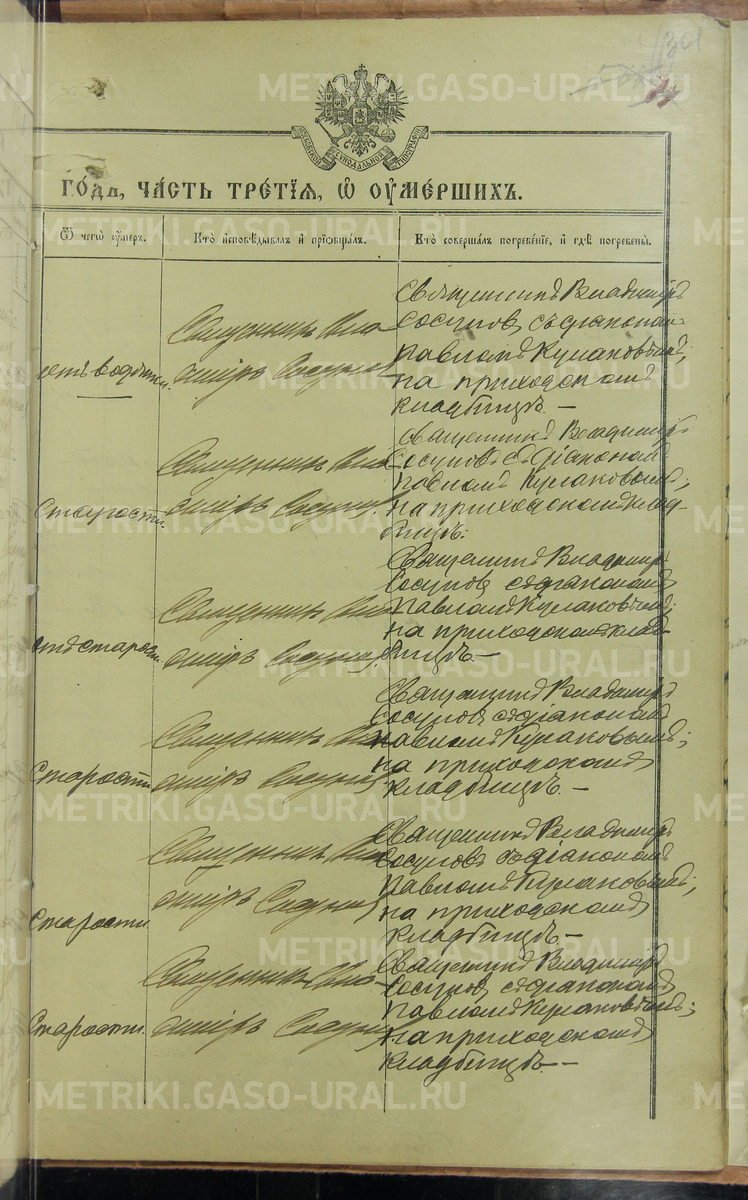 130
МОСКОВСКОЙ СИНОДАЛЬНОЙ ТИПОГРАФІИ
го́дъ, ча́сть тре́тїѧ, ѡ҆ ᲂу҆ме́ршихъ.
Ѿ чегѡ̀ ᲂу҆́меръ.
Кто̀ и҆сповѣ́дывалъ и҆ прїѡбща́лъ.
Кто̀ соверша́лъ погребе́нїе, и҆ гдѣ̀ погребены̀.
отъ водянки.
Священникъ Вла-
диміръ Сосуновъ
Священникъ Владиміръ
Сосуновъ съ діакономъ
Павломъ Кулаковымъ;
на приходскомъ
кладбищѣ. —
Старости.
Священникъ Вла-
диміръ Сосуновъ
Священникъ Владиміръ
Сосуновъ съ діакономъ
Павломъ Кулаковымъ;
на приходскомъ клад-
бищѣ.
отъ старости.
Священникъ Вла-
диміръ Сосуновъ.
Священникъ Владиміръ
Сосуновъ съ діакономъ
Павломъ Кулаковымъ;
на приходскомъ клад-
бищѣ. —
Старости
Священникъ Вла-
диміръ Сосуновъ
Священникъ Владиміръ
Сосуновъ съ діакономъ
Павломъ Кулаковымъ;
на приходскомъ
кладбищѣ. —
Старости.
Священникъ Вла-
диміръ Сосуновъ
Священникъ Владиміръ
Сосуновъ съ діакономъ
Павломъ Кулаковымъ;
на приходскомъ
кладбищѣ. —
Старости.
Священникъ Вла-
диміръ Сосуновъ
Священникъ Владиміръ
Сосуновъ съ діакономъ
Павломъ Кулаковымъ;
на приходскомъ
кладбищѣ. —
METRIKI.GASO-URAL.RU